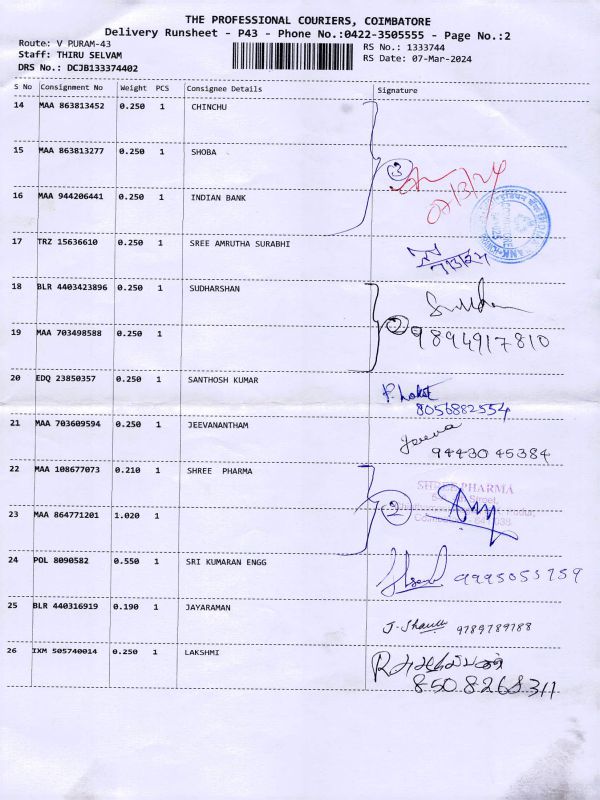 THE PROFESSIONAL COURIERS, COIMBATORE
Delivery Runsheet - P43 - Phone No.:0422-3505555 - Page No.:2
Route: V PURAM-43
RS No.: 1333744
Staff: THIRU SELVAM
RS Date: 07-Mar-2024
DRS No.: DCJB133374402
S No Consignment No Weight PCS Consignee Details Signature
14 MAA 863813452 0.250 1 CHINCHU
15 MAA 863813277 0.250 1 SHOBA
3
07/3/24
16 MAA 944206441 0.250 1 INDIAN BANK
17 TRZ 15636610 0.250 1 SREE AMRUTHA SURABHI
7/3/24
18 BLR 4403423896 0.250 1 SUDHARSHAN
19 MAA 703498588 0.250 1
2 9894917810
20 EDQ 23850357 0.250 1 SANTHOSH KUMAR
8056882554
21 MAA 703609594 0.250 1 JEEVANANTHAM
Jeeva
94430 45384
22 MAA 108677073 0.210 1 SHREE PHARMA
SHREE PHARMA
Street,
2
23 MAA 864771201 1.020 1
24 POL 8090582 0.550 1 SRI KUMARAN ENGG
9995053759
25 BLR 440316919 0.190 1 JAYARAMAN
9789789788
26 IXM 505740014 0.250 1 LAKSHMI
8508268311